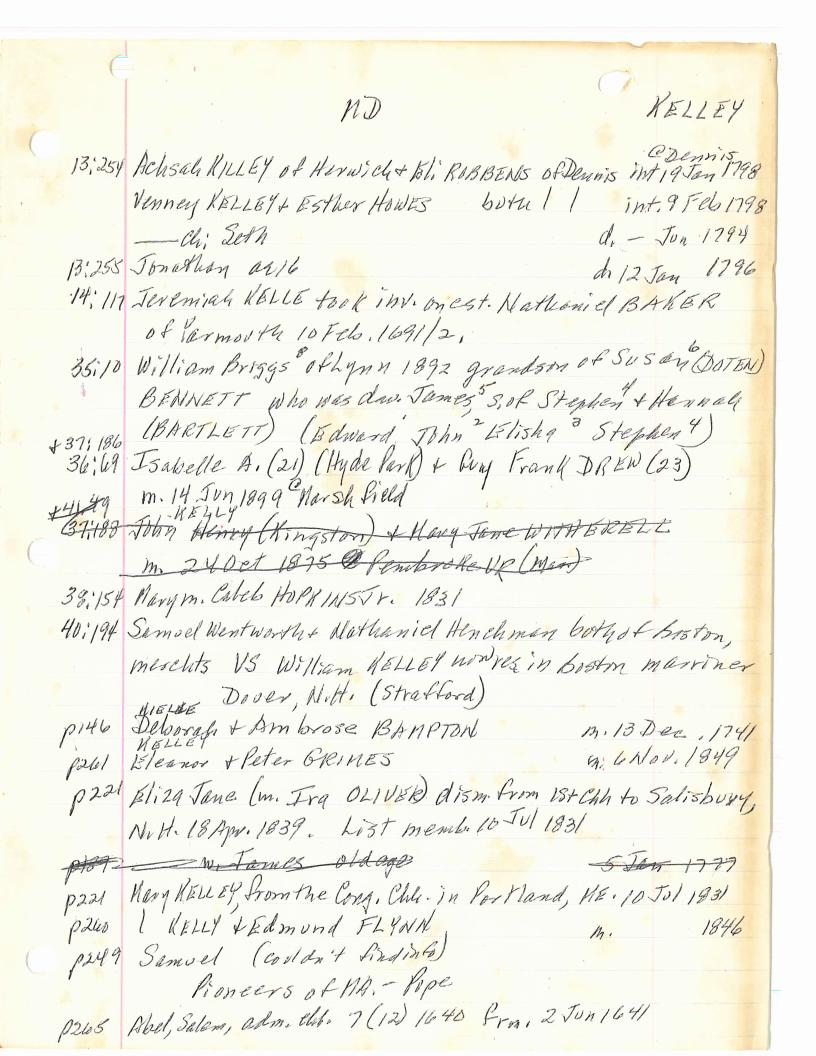 MD KELLEY
@Dennis
13:254 Achsah KILLEY of Harwich & Eli ROBBENS of Dennis int 19 Jan 1798
Venney KELLEY & Esther HOWES both | | int. 9 Feb 1798
—— ch: Seth d. – Jun 1794
13:255 Jonathan ae 16 d. 12 Jan 1796
14:111 Jeremiah KELLE took inv. on est. Nathaniel BAKER
of Yarmouth 10 Feb. 1691/2.
35:10 William Briggs⁸ of Lynn 1892 grandson of Susan⁶ (DOTEN)
BENNETT who was dau. James⁵, s. of Stephen⁴ & Hannah
(BARTLETT) (Edward¹ John² Elisha³ Stephen⁴)
+37:186
36:69 Isabelle A. (21) (Hyde Park) & Guy Frank DREW (23)
m. 14 Jun 1899 @ Marshfield
+41:49 KELLY
(37:188 John Henry (Kingston) & Mary Jane WITHERELL
m. 24 Oct 1875 @ Pembroke VR (Man)
38:154 Mary m. Caleb HOPKINS Jr. 1831
40:194 Samuel Wentworth & Nathaniel Henchman both of Boston,
merchts VS William KELLEY now res in boston marriner
Dover, N.H. (Strafford)
KIELLE
p146 Deborah & Ambrose BAMPTON m. 13 Dec. 1741
KELLEY
p261 Eleanor & Peter GRIMES m. 6 Nov. 1849
p221 Eliza Jane (m. Ira OLIVER) dism. from 1st Chh to Salisbury,
N.H. 18 Apr. 1839. List memb. 10 Jul 1831
—— w. James old age 5 Jan 1777
p221 Mary KELLEY, from the Cong. Chh. in Portland, ME. 10 Jul 1831
p260 | KELLY & Edmund FLYNN m. 1846
p249 Samuel (couldn't find info)
Pioneers of MA. – Pope
p265 Abel, Salem, adm. chh. 7 (12) 1640 frm. 2 Jun 1641